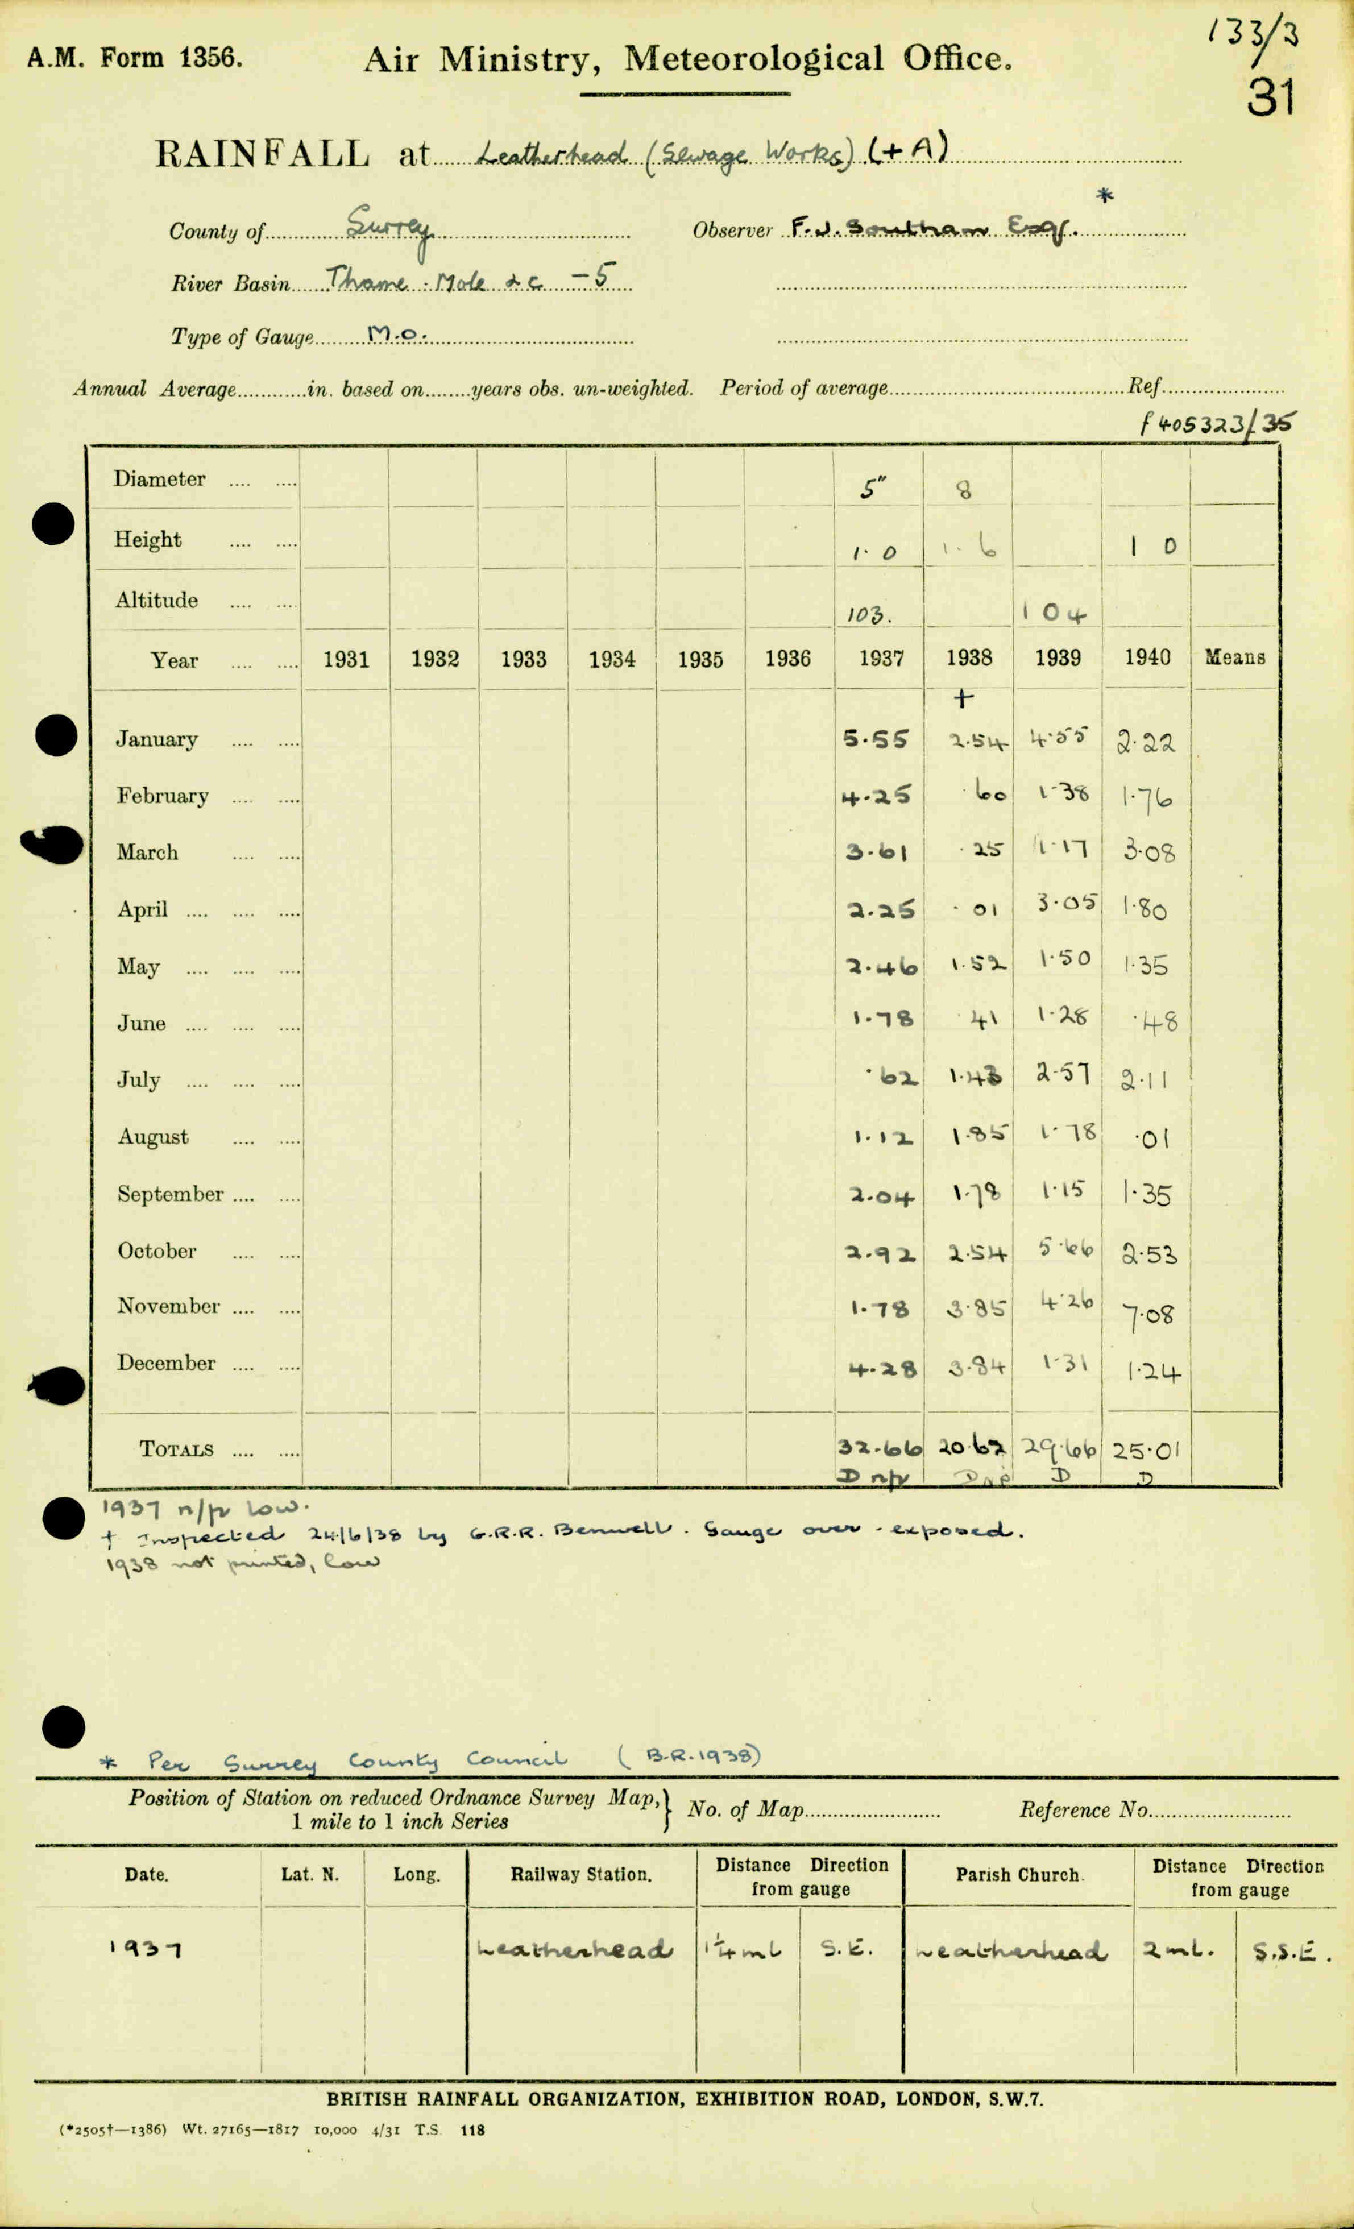 133/3
A.M. Form 1356. Air Ministry, Meteorological Office.
31
RAINFALL at Leatherhead (Sewage Works) (+A)
*
County of Surrey Observer F.J. Southam Esqr.
River Basin Thame. Mole &c -5
Type of Gauge M.O.
Annual Average in. based on years obs. un-weighted. Period of average Ref.
f405323/35
Diameter 5" 8
Height 1.0 1.6 1 0
Altitude 103. 104
Year 1931 1932 1933 1934 1935 1936 1937 1938 1939 1940 Means
+
January 5.55 2.54 4.55 2.22
February 4.25 .60 1.38 1.76
March 3.61 .25 1.17 3.08
April 2.25 .01 3.05 1.80
May 2.46 1.52 1.50 1.35
June 1.78 .41 1.28 .48
July .62 1.43 2.57 2.11
August 1.12 1.85 1.78 .01
September 2.04 1.78 1.15 1.35
October 2.92 2.54 5.66 2.53
November 1.78 3.85 4.26 7.08
December 4.28 3.84 1.31 1.24
TOTALS 32.66 20.62 29.66 25.01
D n/p D n/p D D
1937 n/p low.
† Inspected 24/6/38 by G.R.R. Benwell. Gauge over-exposed.
1938 not printed, low
* Per Surrey County Council (B.R. 1938)
Position of Station on reduced Ordnance Survey Map, } No. of Map Reference No.
1 mile to 1 inch Series
Date. Lat. N. Long. Railway Station. Distance Direction from gauge Parish Church. Distance Direction from gauge
1937 Leatherhead 1¼ ml S.E. Leatherhead 2 ml. S.S.E.
BRITISH RAINFALL ORGANIZATION, EXHIBITION ROAD, LONDON, S.W.7.
(*2505†—1386) Wt. 27165—1817 10,000 4/31 T.S. 118